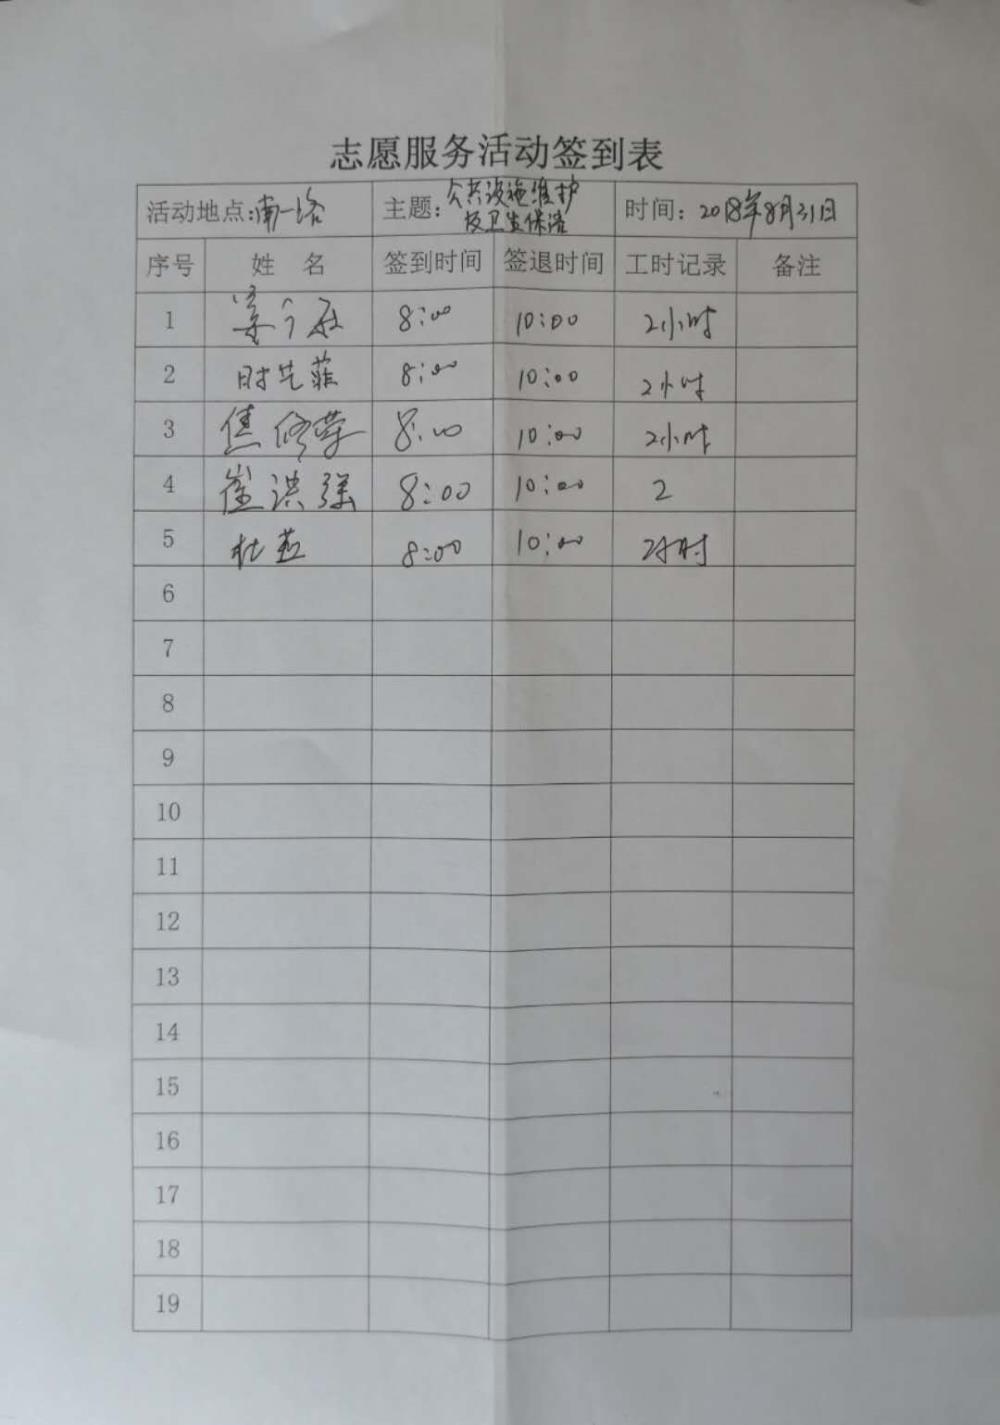 志愿服务活动签到表
活动地点:南一路 主题:公共设施维护及卫生保洁 时间:2018年8月31日
序号 姓名 签到时间 签退时间 工时记录 备注
1 8:00 10:00 2小时
2 时艺菲 8:00 10:00 2小时
3 焦修萍 8:00 10:00 2小时
4 崔洪强 8:00 10:00 2
5 杜燕 8:00 10:00 2小时
6
7
8
9
10
11
12
13
14
15
16
17
18
19